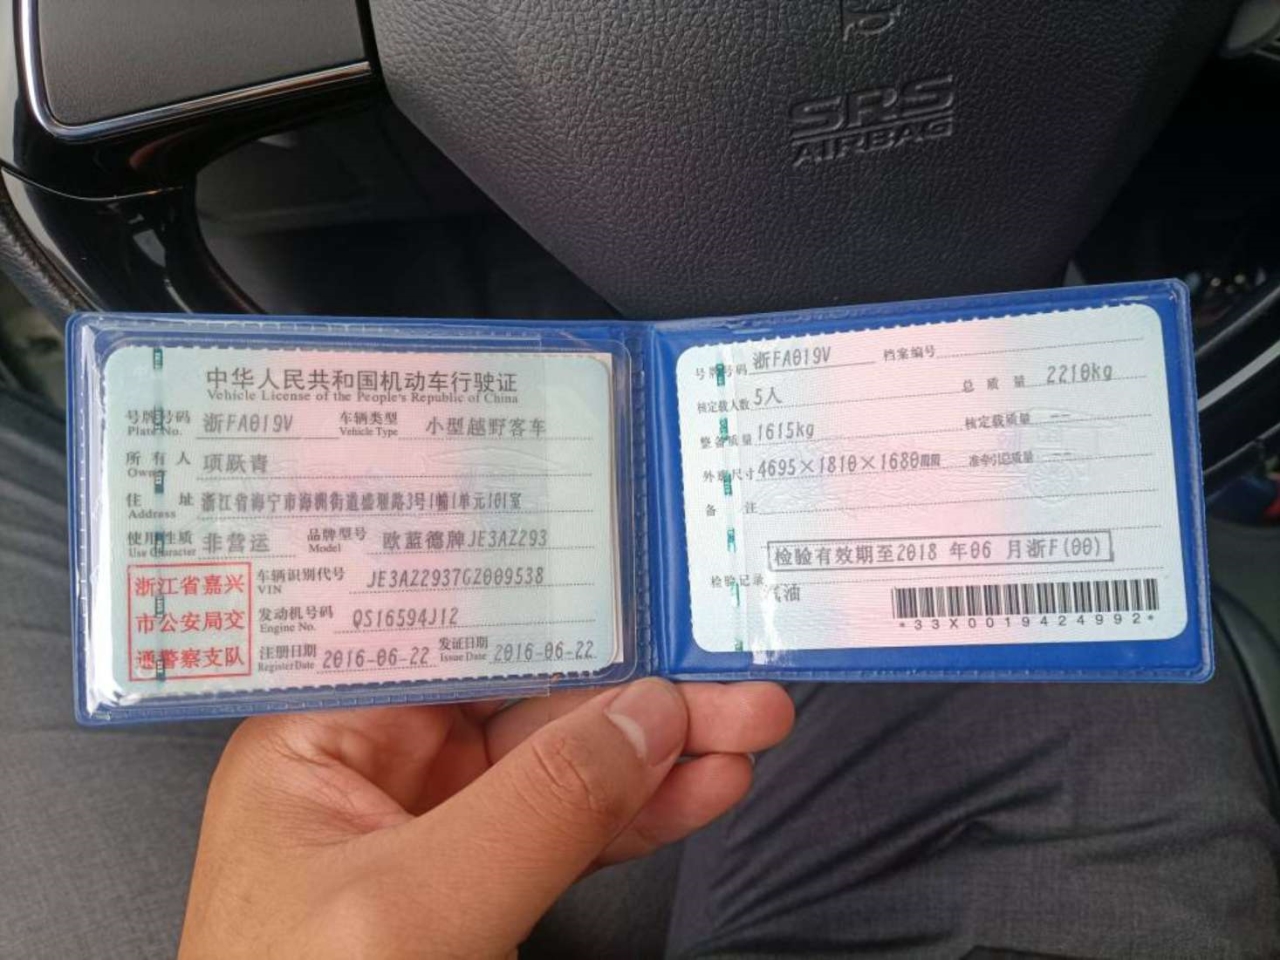 SRS
AIRBAG
中华人民共和国机动车行驶证
Vehicle License of the People's Republic of China
号牌号码 浙FA019V 车辆类型 小型越野客车
Plate No. Vehicle Type
所有人 项跃青
Owner
住址 浙江省海宁市海洲街道盛堰路3号1幢1单元101室
Address
使用性质 非营运 品牌型号 欧蓝德牌JE3AZ293
Use Character Model
浙江省嘉兴
市公安局交
通警察支队
车辆识别代号 JE3AZ2937GZ009538
VIN
发动机号码 QS16594J12
Engine No.
注册日期 2016-06-22 发证日期 2016-06-22
Register Date Issue Date
号牌号码 浙FA019V 档案编号
核定载人数 5人 总质量 2210kg
整备质量 1615kg 核定载质量 --
外廓尺寸 4695×1810×1680mm 准牵引总质量 --
备注
检验有效期至2018 年06 月浙F(00)
检验记录
汽油
*33X0019424992*